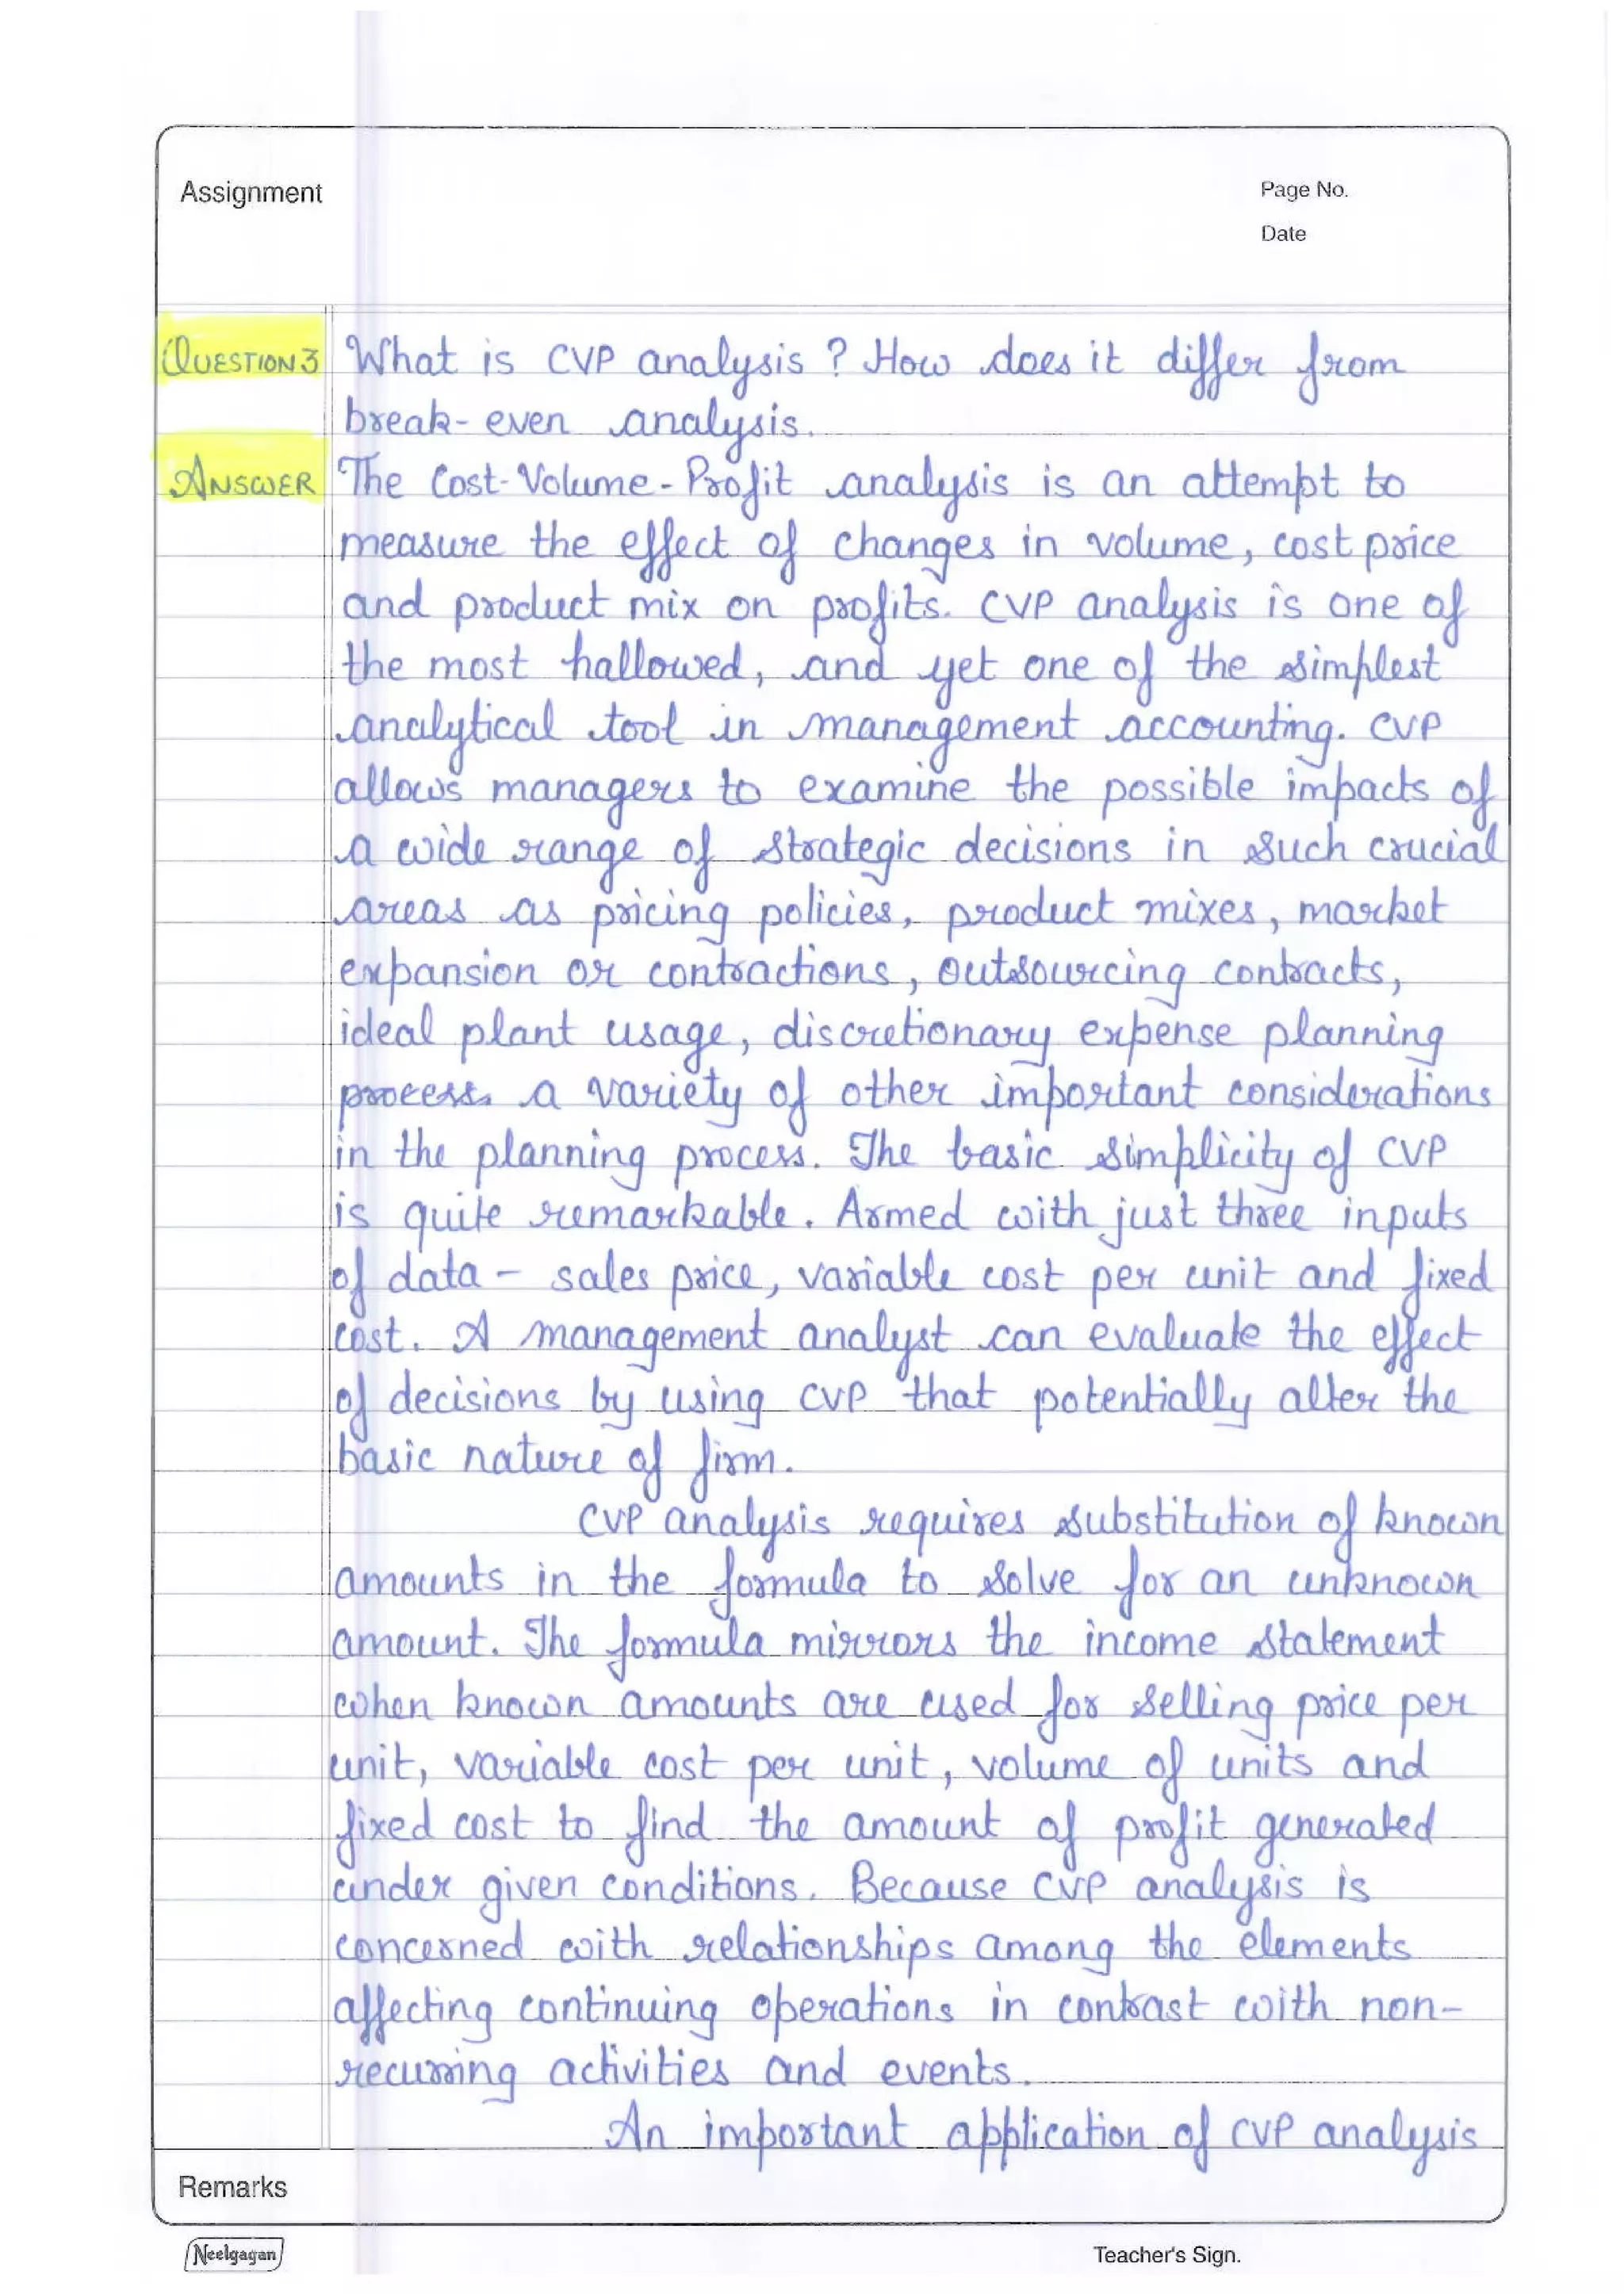 Assignment
Page No.
Date
QUESTION 3 What is CVP analysis ? How does it differ from
break-even analysis.
ANSWER The Cost-Volume-Profit analysis is an attempt to
measure the effect of changes in volume, cost price
and product mix on profits. CVP analysis is one of
the most hallowed, and yet one of the simplest
analytical tool in management accounting. CVP
allows managers to examine the possible impacts of
a wide range of strategic decisions in such crucial
areas as pricing policies, product mixes, market
expansion or contractions, outsourcing contracts,
ideal plant usage, discretionary expense planning
process. a variety of other important considerations
in the planning process. The basic simplicity of CVP
is quite remarkable. Armed with just three inputs
of data - sales price, variable cost per unit and fixed
cost. A management analyst can evaluate the effect
of decisions by using CVP that potentially alter the
basic nature of firm.
CVP analysis requires substitution of known
amounts in the formula to solve for an unknown
amount. The formula mirrors the income statement
when known amounts are used for selling price per
unit, variable cost per unit, volume of units and
fixed cost to find the amount of profit generated
under given conditions. Because CVP analysis is
concerned with relationships among the elements
affecting continuing operations in contrast with non-
recurring activities and events.
An important application of CVP analysis
Remarks
Neelgagan
Teacher's Sign.